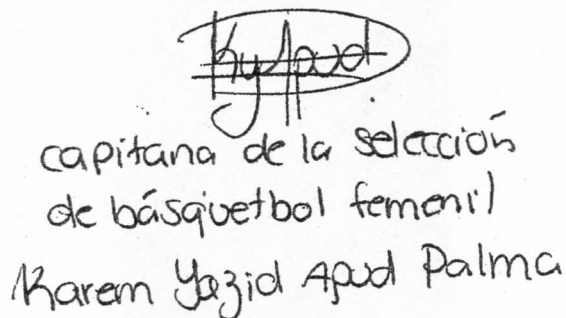 KyApud
capitana de la selección
de básquetbol femenil
Karem Yazid Apud Palma